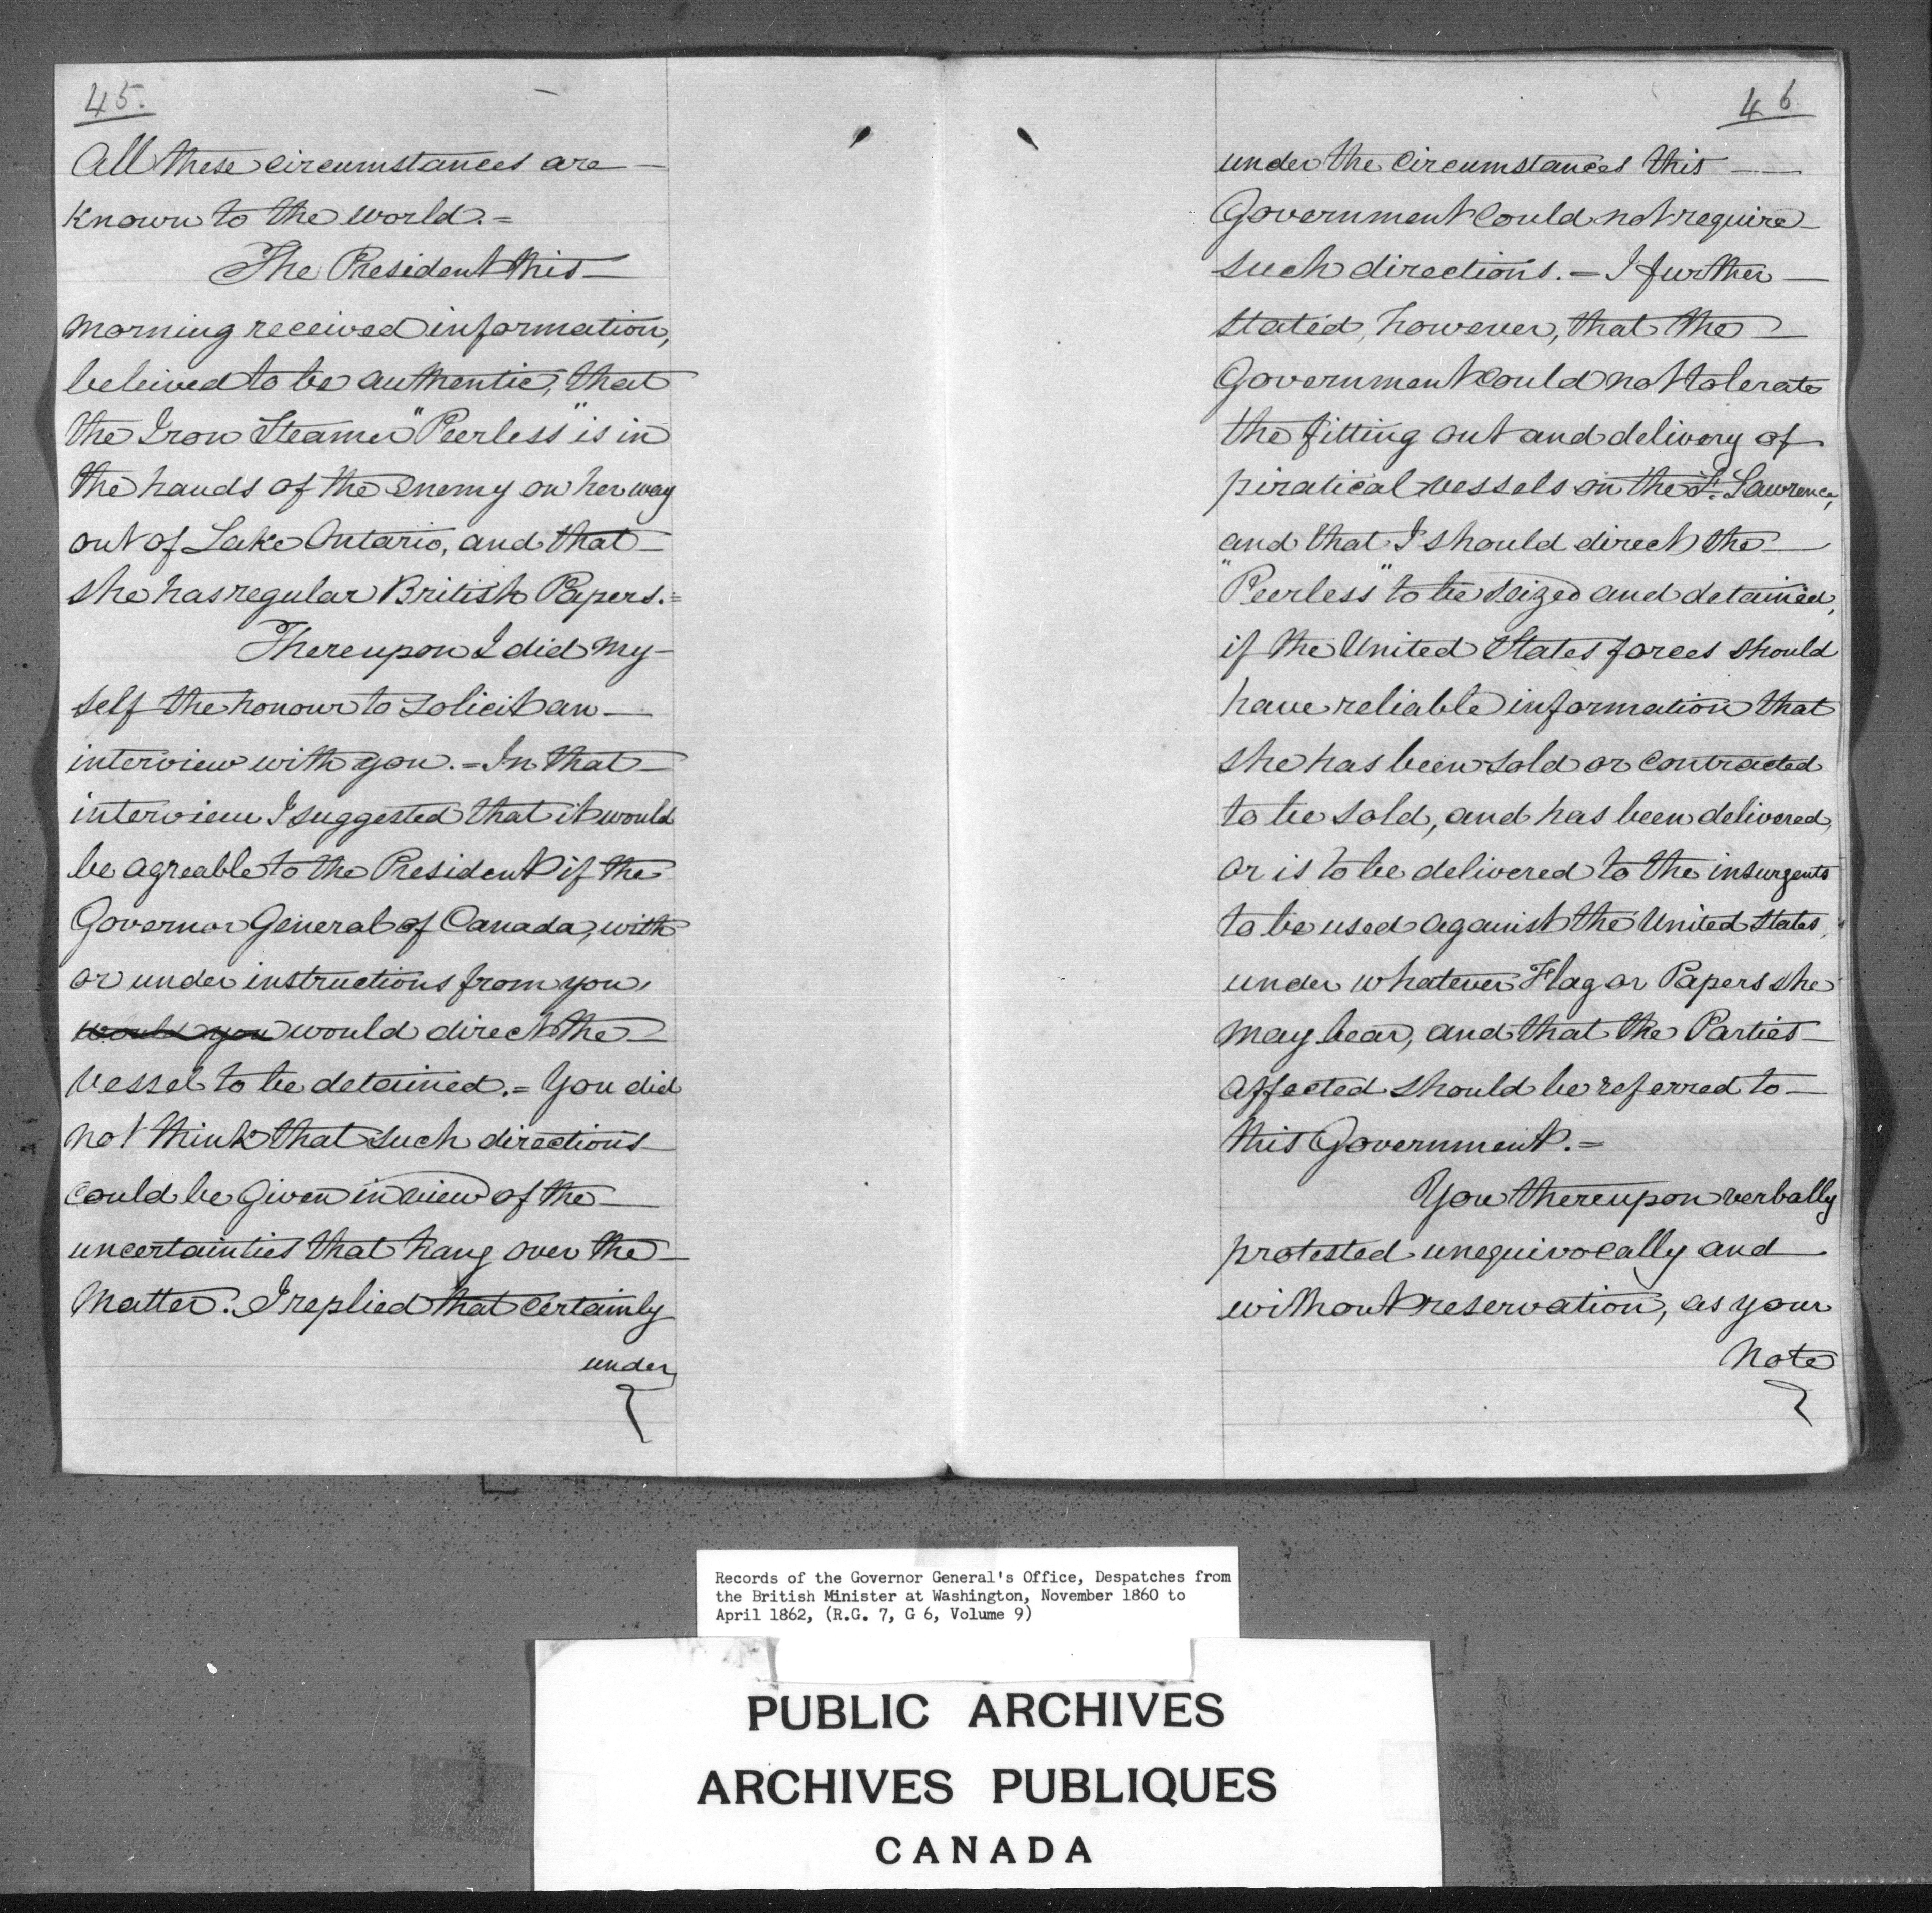 45.
All these circumstances are —
known to the world. =
The President this —
morning received information,
beleived to be authentic, that
the Iron Steamer "Peerless" is in
the hands of the enemy on her way
out of Lake Ontario, and that —
she has regular British Papers. =
Thereupon I did my-
self the honour to solicit an —
interview with you. = In that —
interview I suggested that it would
be agreable to the President if the
Governor General of Canada, with
or under instructions from you,
would you would direct the —
vessel to be detained. = You did
not think that such directions
could be given in view of the —
uncertainties that hang over the —
matter. I replied that certainly
under
46
under the circumstances this —
Government could not require —
such directions. = I further —
stated, however, that the —
Government could not tolerate
the fitting out and delivery of
piratical vessels on the St. Lawrence,
and that I should direct the —
"Peerless" to be seized and detained,
if the United States forces should
have reliable information that
she has been sold or contracted
to be sold, and has been delivered,
or is to be delivered to the insurgents
to be used against the United States,
under whatever Flag or Papers she
may bear, and that the Parties —
affected should be referred to —
this Government. =
You thereupon verbally
protested unequivocally and
without reservation, as your
Note
Records of the Governor General's Office, Despatches from
the British Minister at Washington, November 1860 to
April 1862, (R.G. 7, G 6, Volume 9)
PUBLIC ARCHIVES
ARCHIVES PUBLIQUES
CANADA